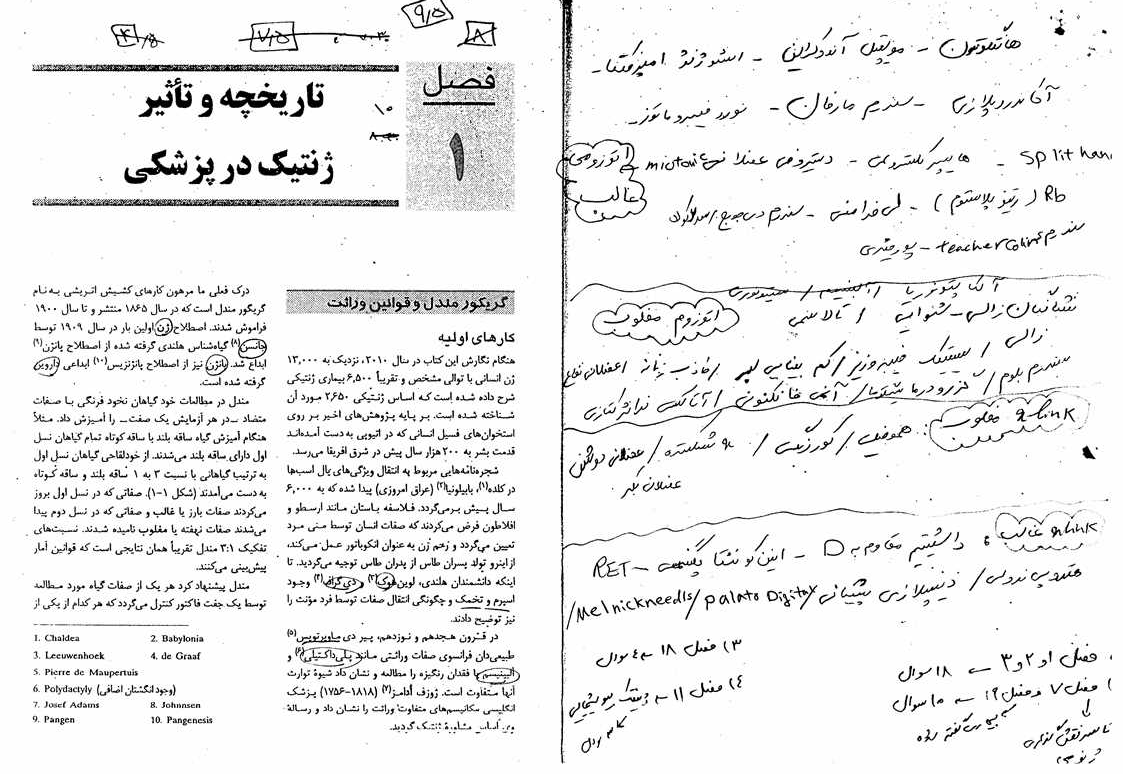 ۹/۵
۴/۵
۷/۵
۸
فصل
۱
تاریخچه و تأثیر
ژنتیک در پزشکی
۱۰
گریگور مندل و قوانین وراثت
کارهای اولیه
هنگام نگارش این کتاب در سال ۲۰۱۰، نزدیک به ۱۳،۰۰۰
ژن انسانی با توالی مشخص و تقریباً ۶،۵۰۰ بیماری ژنتیکی
شرح داده شده است که اساس ژنتیکی ۲،۶۵۰ مورد آن
شناخته شده است. بر پایه پژوهش‌های اخیر بر روی
استخوان‌های فسیل انسانی که در اتیوپی به دست آمده‌اند
قدمت بشر به ۲۰۰ هزار سال پیش در شرق افریقا می‌رسد.
شجره‌نامه‌هایی مربوط به انتقال ویژگی‌های یال اسب‌ها
در کلده(۱)، بابیلونیا(۲) (عراق امروزی) پیدا شده که به ۶،۰۰۰
سال پیش برمی‌گردد. فلاسفه باستان مانند ارسطو و
افلاطون فرض می‌کردند که صفات انسان توسط منی مرد
تعیین می‌گردد و رحم زن به عنوان انکوباتور عمل می‌کند،
از اینرو تولد پسران طاس از پدران طاس توجیه می‌گردید. تا
اینکه دانشمندان هلندی، لوین‌هوک(۳) و دی‌گراف(۴) وجود
اسپرم و تخمک و چگونگی انتقال صفات توسط فرد مؤنث را
نیز توضیح دادند.
در قرون هجدهم و نوزدهم، پیر دی ماوپرتویس(۵)
طبیعی‌دان فرانسوی صفات وراثتی مانند پلی‌داکتیلی(۶) و
آلبینیسم یا فقدان رنگیزه را مطالعه و نشان داد شیوهٔ توارث
آنها متفاوت است. ژوزف آدامز(۷) (۱۸۱۸-۱۷۵۶) پزشک
انگلیسی مکانیسم‌های متفاوت وراثت را نشان داد و رسالهٔ
وی اساس مشاورهٔ ژنتیک گردید.
درک فعلی ما مرهون کارهای کشیش اتریشی به نام
گریگور مندل است که در سال ۱۸۶۵ منتشر و تا سال ۱۹۰۰
فراموش شدند. اصطلاح ژن اولین بار در سال ۱۹۰۹ توسط
جانسن(۸) گیاه‌شناس هلندی گرفته شده از اصطلاح پانژن(۹)
ابداع شد. پانژن نیز از اصطلاح پانژنزیس(۱۰) ابداعی داروین
گرفته شده است.
مندل در مطالعات خود گیاهان نخود فرنگی با صفات
متضاد ـ در هر آزمایش یک صفت ـ را آمیزش داد. مثلاً
هنگام آمیزش گیاه ساقه بلند با ساقه کوتاه تمام گیاهان نسل
اول دارای ساقه بلند می‌شدند. از خودلقاحی گیاهان نسل اول
به ترتیب گیاهانی با نسبت ۳ به ۱ ساقه بلند و ساقه کوتاه
به دست می‌آمدند (شکل ۱-۱). صفاتی که در نسل اول بروز
می‌کردند صفات بارز یا غالب و صفاتی که در نسل دوم پیدا
می‌شدند صفات نهفته یا مغلوب نامیده شدند. نسبت‌های
تفکیک ۳:۱ مندل تقریباً همان نتایجی است که قوانین آمار
پیش‌بینی می‌کنند.
مندل پیشنهاد کرد هر یک از صفات گیاه مورد مطالعه
توسط یک جفت فاکتور کنترل می‌گردد که هر کدام از یکی از
1. Chaldea 2. Babylonia
3. Leeuwenhoek 4. de Graaf
5. Pierre de Maupertuis
6. Polydactyly (وجود انگشتان اضافی)
7. Josef Adams 8. Johnnsen
9. Pangen 10. Pangenesis
هانتینگتون -
آکندروپلازی - سندرم مارفان - نوروفیبروماتوز -
اتوزومی غالب
split han - دیستروفی عضلانی miotonic
Rb (رتینوبلاستوم) - لی فرامنی - سندرم دی جورج
سندرم teacher colins - پورفیری
آلکاپتونوریا / آلبینیسم /
اتوزوم مغلوب
ناشنوایی / تالاسمی
سیستیک فیبروزیز /
سندرم بلوم / گزرودرما پیگمنتوزا / آنمی فانکونی /
x link مغلوب: هموفیلی / کوررنگی / x شکننده / عضلانی دوشن
عضلانی بکر
x link غالب: مقاوم به D - RET -
/ Melnick needls / palato Digital /
فصل ۱ و ۲ و ۳ ← ۱۸ سوال
۱۳) فصل ۱۸ ← ۴ سوال